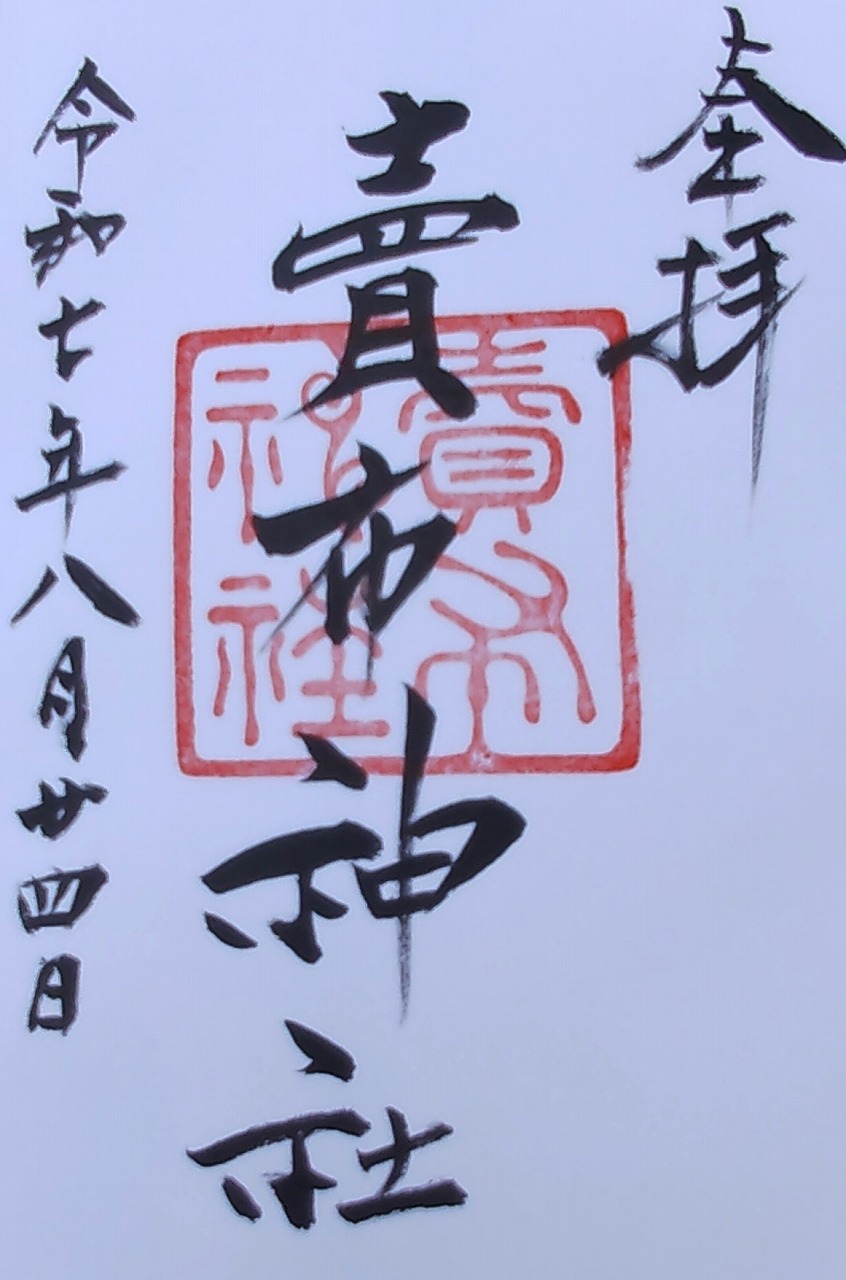 奉拝
賣布神社
賣布
神社
令和七年八月廿四日